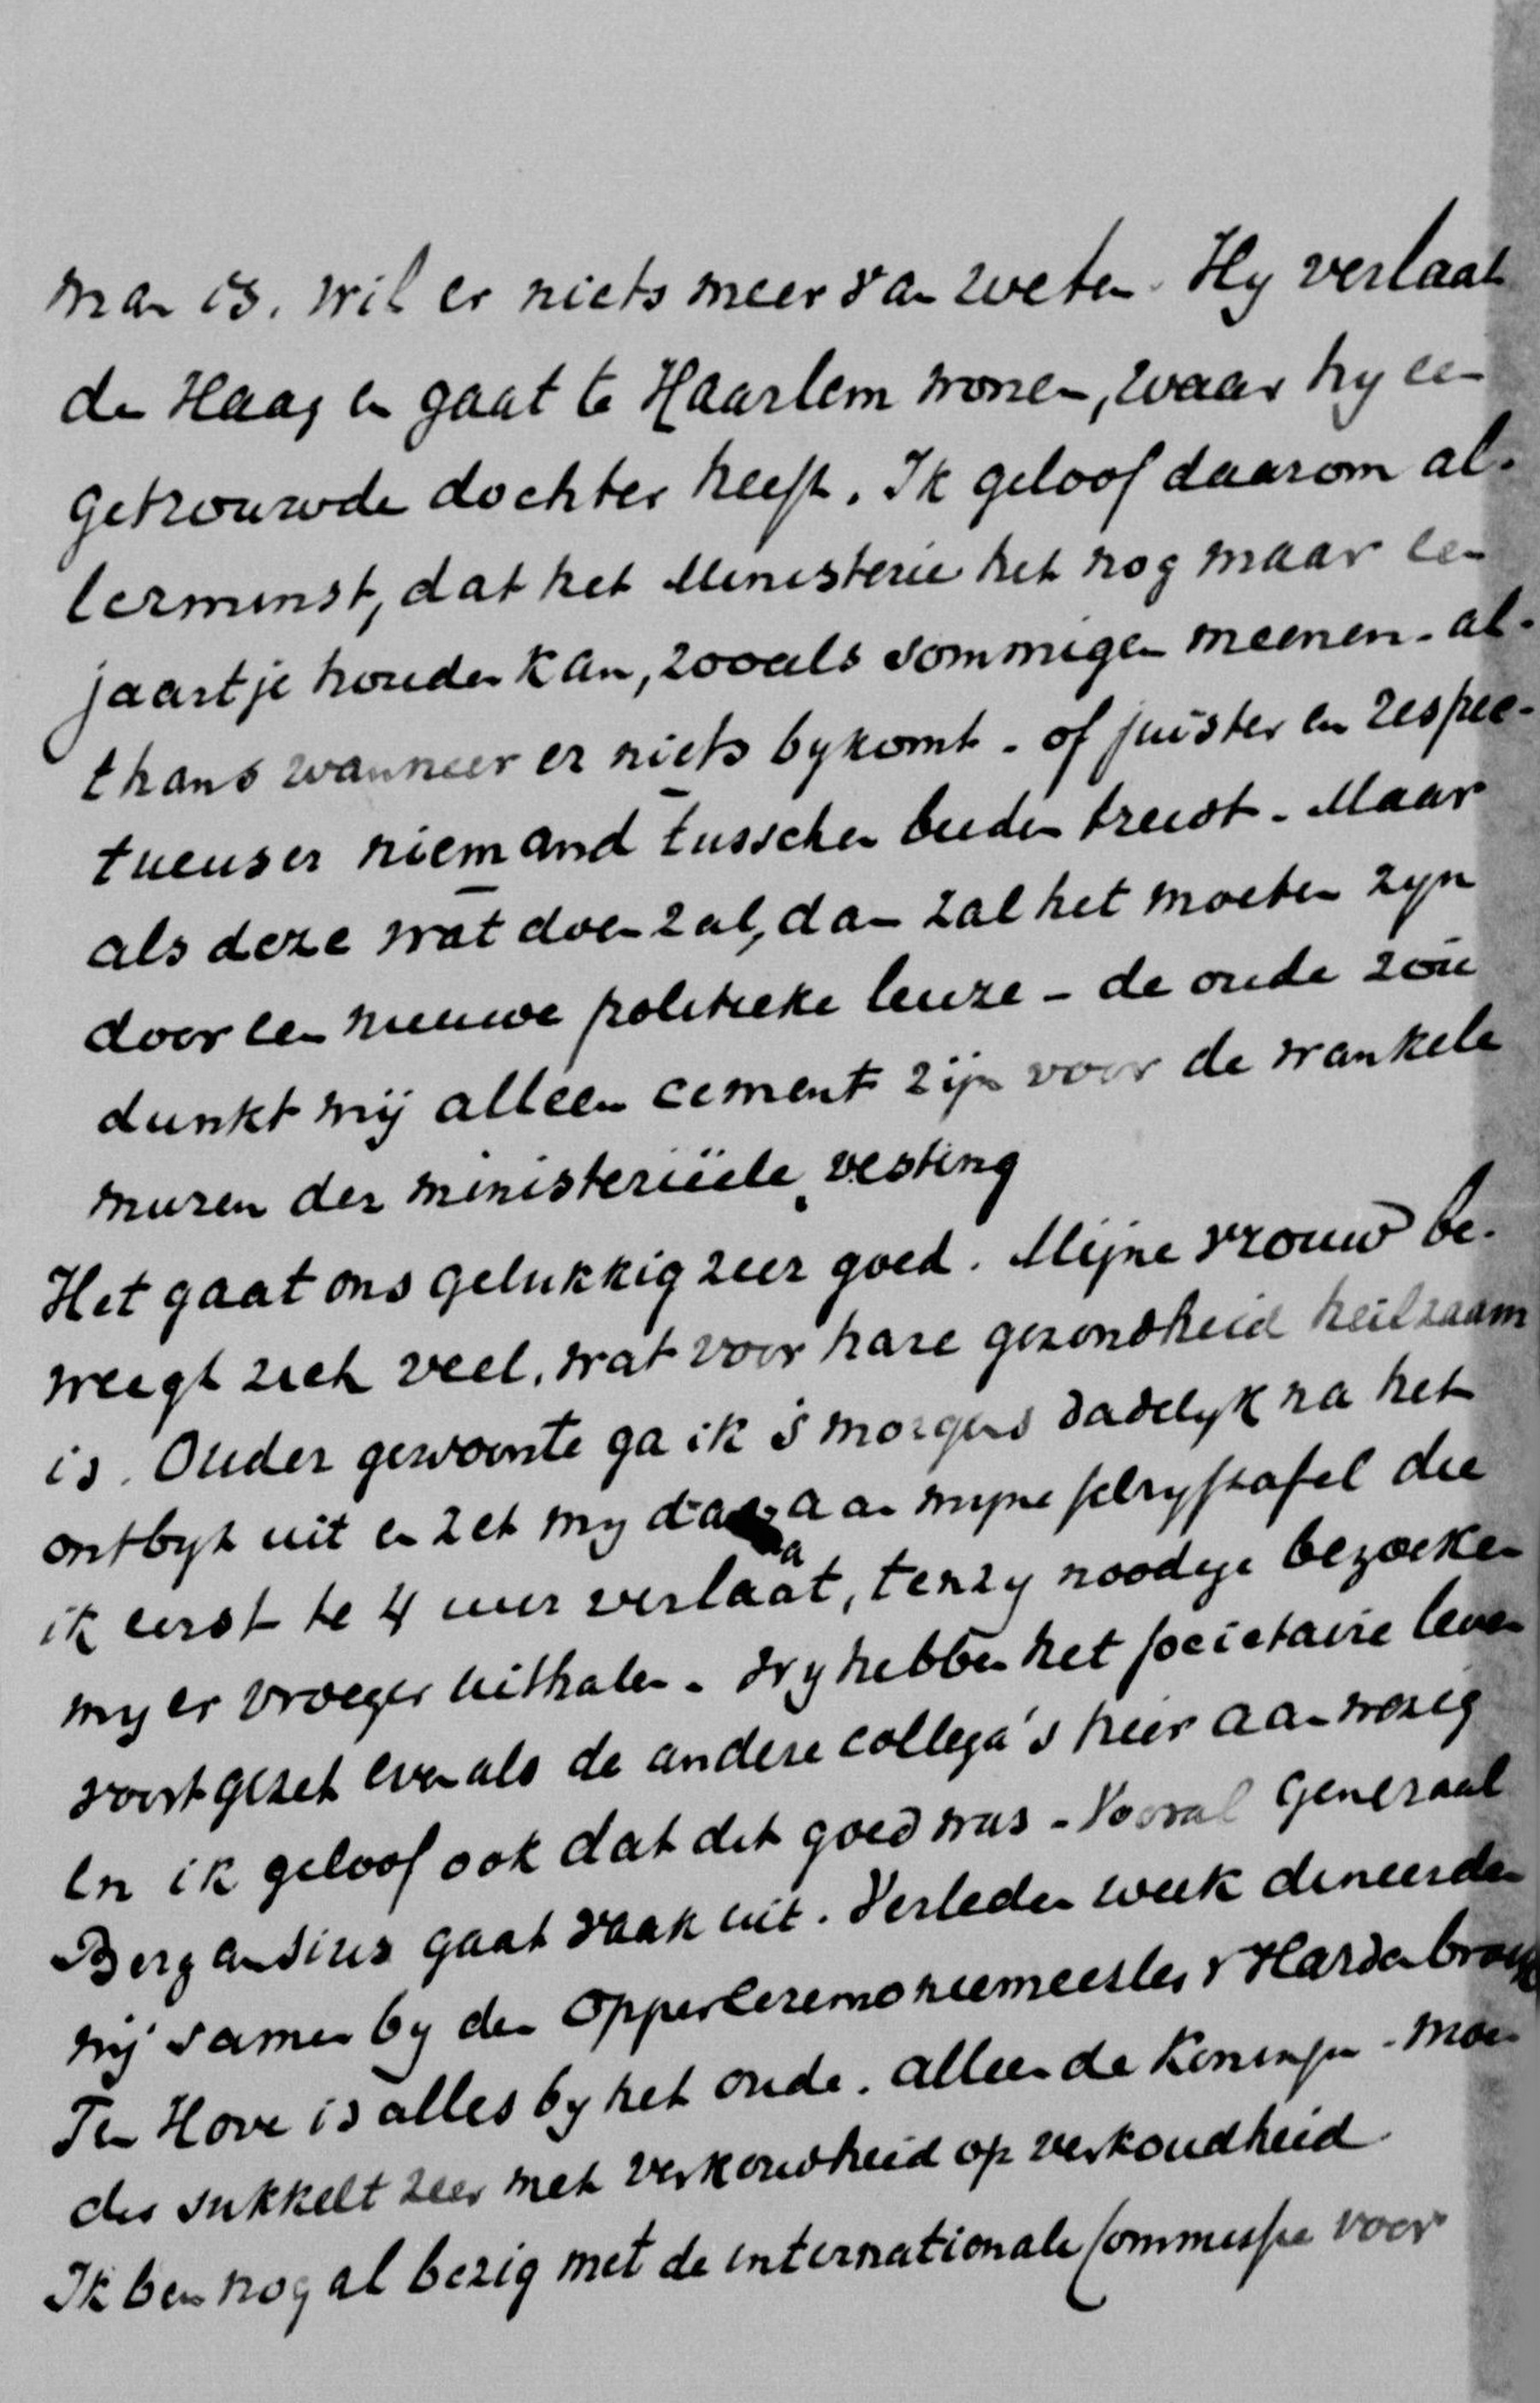 man is. wil er niets meer van weten. Hy verlaat
den Haag en gaat te Haarlem wonen, waar hy een
getrouwde dochter heeft. Ik geloof daarom al-
lerminst, dat het Ministerie het nog maar een
jaartje houden kan, zooals sommigen meenen - al-
thans wanneer er niets bykomt - of juister en respec-
tueuser niemand tusschen beiden treedt. Maar
als deze wat doen zal, dan zal het moeten zyn
door een nieuwe politieke leuze - de oude zou
dunkt mij alleen cement zijn voor de wankele
muren der ministerieele vesting
Het gaat ons gelukkig zeer goed. Mijne vrouw be-
weegt zich veel, wat voor hare gezondheid heilzaam
is. Ouder gewoonte ga ik 's morgens dadelyk na het
ontbyt uit en zet my daarna aan myne schryftafel die
ik eerst te 4 uur verlaat, tenzy noodige bezoeken
my er vroeger uithalen. Wy hebben het societaire leven
voortgezet evenals de andere collega's hier aanwezig
en ik geloof ook dat dit goed was - Vooral Generaal
Bergansius gaat vaak uit. Verleden week dineerden
wij samen by den Opperceremoniemeester v Hardenbroek
Ten Hove is alles by het oude. alleen de Koningin - moe-
der sukkelt zeer met verkoudheid op verkoudheid
Ik ben nog al bezig met de internationale Commissie voor